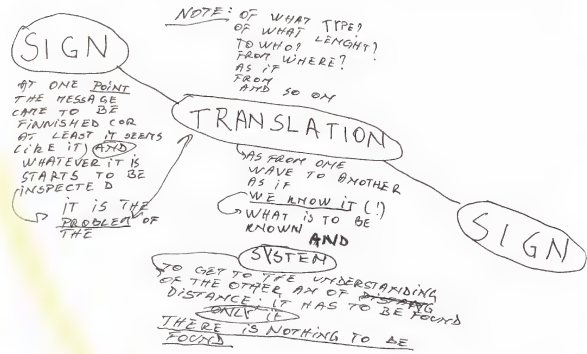 NOTE: OF WHAT TYPE?
OF WHAT LENGHT?
TO WHO?
FROM WHERE?
AS IF
FROM
AND SO ON
SIGN
AT ONE POINT
THE MESSAGE
CAME TO BE
FINNISHED (OR
AT LEAST IT SEEMS
LIKE IT) AND
WHATEVER IT IS
STARTS TO BE
INSPECTED
IT IS THE
PROBLEM OF
THE
TRANSLATION
AS FROM ONE
WAVE TO ANOTHER
AS IF
WE KNOW IT (!)
WHAT IS TO BE
KNOWN AND
SIGN
SYSTEM
TO GET TO THE UNDERSTANDING
OF THE OTHER AN OF
DISTANCE: IT HAS TO BE FOUND
ONLY IF
THERE IS NOTHING TO BE
FOUND